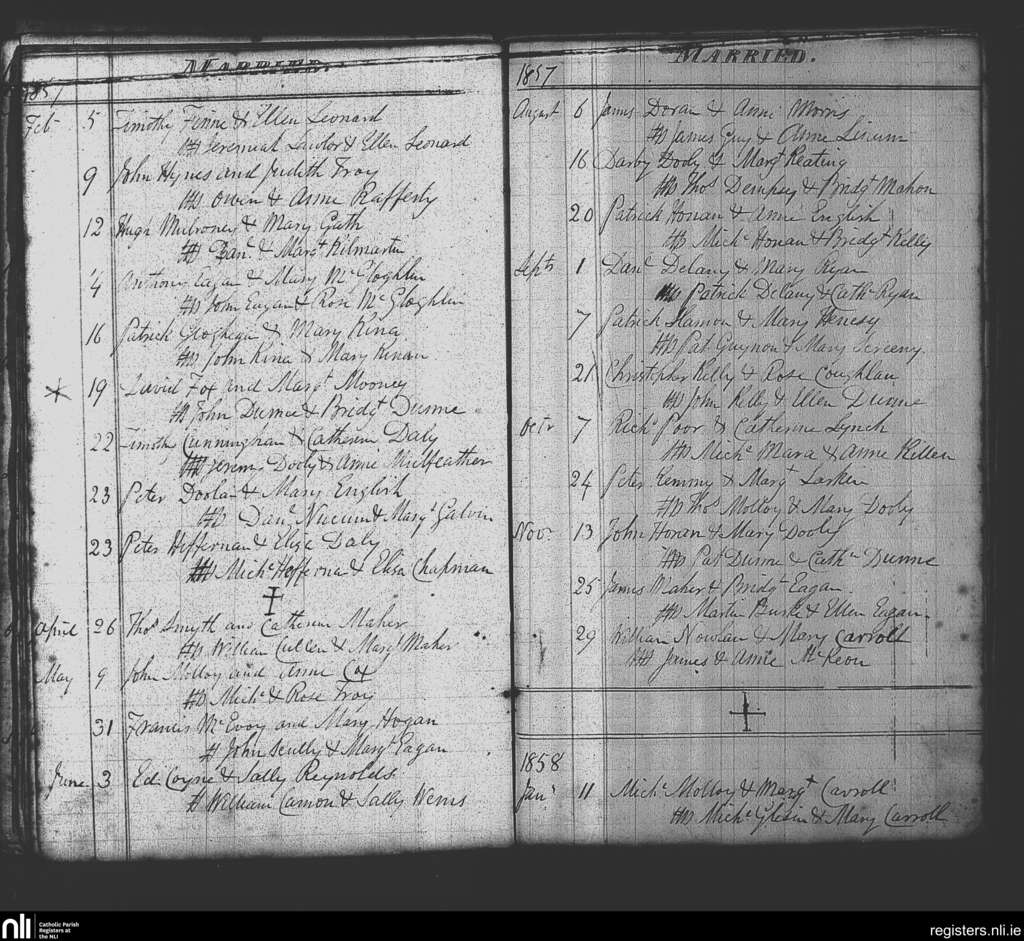 MARRIED.
1857
Feb 5 Timothy Finne & Ellen Leonard
Jeremiah Lawlor & Ellen Leonard
9 John Hynes and Judith Troy
Owen & Anne Rafferty
12 Hugh Mulroney & Mary Guth
Danl. & Margt Kilmartin
14 Anthony Eagan & Mary McGloghlin
John Eagan & Rose McGloghlin
16 Patrick Gloghegan & Mary Kina
John Kina & Mary Kinan
19 David Fox and Margt Mooney
John Dunne & Bridgt Dunne
22 Timothy Cunningham & Catherin Daly
Jerem. Dooly & Anne Mulfeather
23 Peter Doolan & Mary English
Danl & Margt Galvin
23 Peter Heffernan & Eliza Daly
Michl Heffernan & Elisa Chapman
April 26 Thos Smyth and Catherin Maher
William Cullen & Margt Maher
May 9 John Molloy and Anne Cox
Michl & Rose Troy
31 Francis McEvoy and Mary Hogan
John Scully & Margt Eagan
June 3 Ed Coyne & Sally Reynolds
William Camon & Sally Wems
MARRIED.
1857
August 6 James Doran & Anne Morris
James Guy & Anne
16 Darby Dooly & Margt Keating
Thos Dempsey & Bridgt Mahon
20 Patrick Honan & Anne English
Michl Honan & Bridgt Kelly
Septr 1 Danl Delany & Mary Ryan
Patrick Delany & Cathn Ryan
7 Patrick Hamon & Mary
Pat Guynon & Mary
21 Christopher Kelly & Rose Coughlan
John Kelly & Ellen Dunne
Octr 7 Richd Poor & Catherine Lynch
Michl Mara & Anne Killen
24 Peter Kemmy & Margt Larken
Thos Molloy & Mary Dooly
Novr 13 John Horan & Mary Dooly
Pat Dunne & Cathn Dunne
25 James Maher & Bridgt Eagan
Martin Burke & Ellen Eagan
29 William Nowlan & Mary Carroll
James & Anne McKeon
1858
Jany 11 Michl Molloy & Margt Carroll
Michl Glesin & Mary Carroll
nli
Catholic Parish
Registers at
the NLI
registers.nli.ie